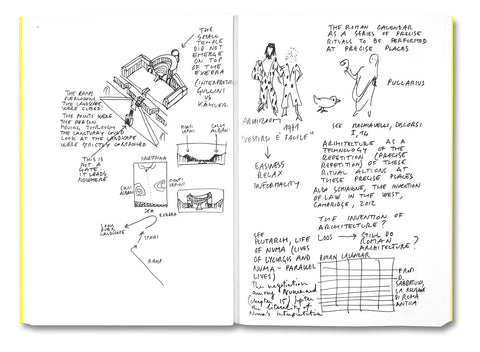 THE
SMALL
TEMPLE
DID NOT
EMERGE
ON TOP
OF THE
EXEDRA
(INTERPRETATION
GULLINI
VS
KÄHLER
THE RAMPS
OVERLOOKING
THE LANDSCAPE
WERE CLOSED:
THE POINTS WERE
THE PERSON
MOVING THROUGH
THE SANCTUARY COULD
LOOK AT THE LANDSCAPE
WERE STRICTLY CONTROLLED
THIS IS
NOT A
GATE:
IT LEADS
NOWHERE
MONTI
LEPINI
COLLI
ALBANI
PALESTRINA
COLLI
ALBANI
MONTI
LEPINI
SEA
EXEDRA
LOOK
OVER
LANDSCAPE
STAIRS
RAMP
THE ROMAN CALENDAR
AS A SERIES OF PRECISE
RITUALS TO BE PERFORMED
AT PRECISE PLACES
PULLARIUS
ARCHIZOOM
"VESTIRSI È FACILE"
EASINESS
RELAX
INFORMALITY
SEE MACHIAVELLI, DISCORSI
I, 14
ARCHITECTURE AS A
TECHNOLOGY OF THE
REPETITION (PRECISE
REPETITION) OF THESE
RITUAL ACTIONS AT
THESE PRECISE PLACES
ALDO SCHIAVONE, THE INVENTION
OF LAW IN THE WEST,
CAMBRIDGE, 2012
THE INVENTION OF
ARCHITECTURE?
LOOS → STILL DO
ROMAN
ARCHITECTURE?
SEE
PLUTARCH, LIFE
OF NUMA (LIVES
OF LYCURGUS AND
NUMA - PARALLEL
LIVES)
The negotiation
among Numa and
(chapter 15) Jupiter
the literality of
Numa's interpretation
ROMAN CALENDAR
D.
SABBATUCCI,
LA RELIGIONE
DI ROMA
ANTICA